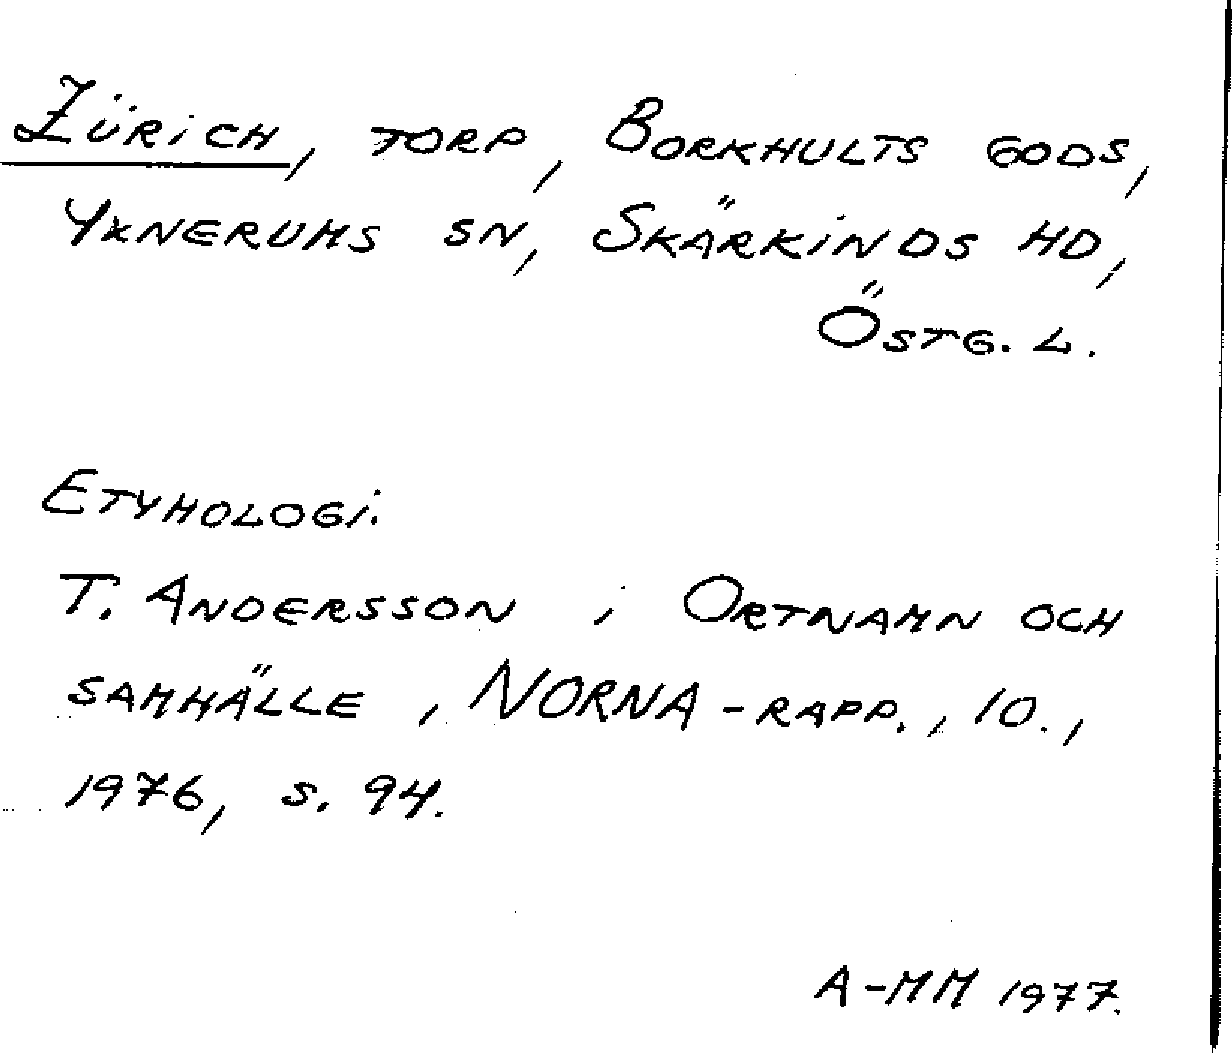 Zürich, torp, Borkhults gods,
Yxnerums sn, Skärkinds hd,
Östg. l.
Etymologi.
T. Andersson i Ortnamn och
samhälle, NORNA-rapp., 10.,
1976, s. 94.
A-MM 1977.